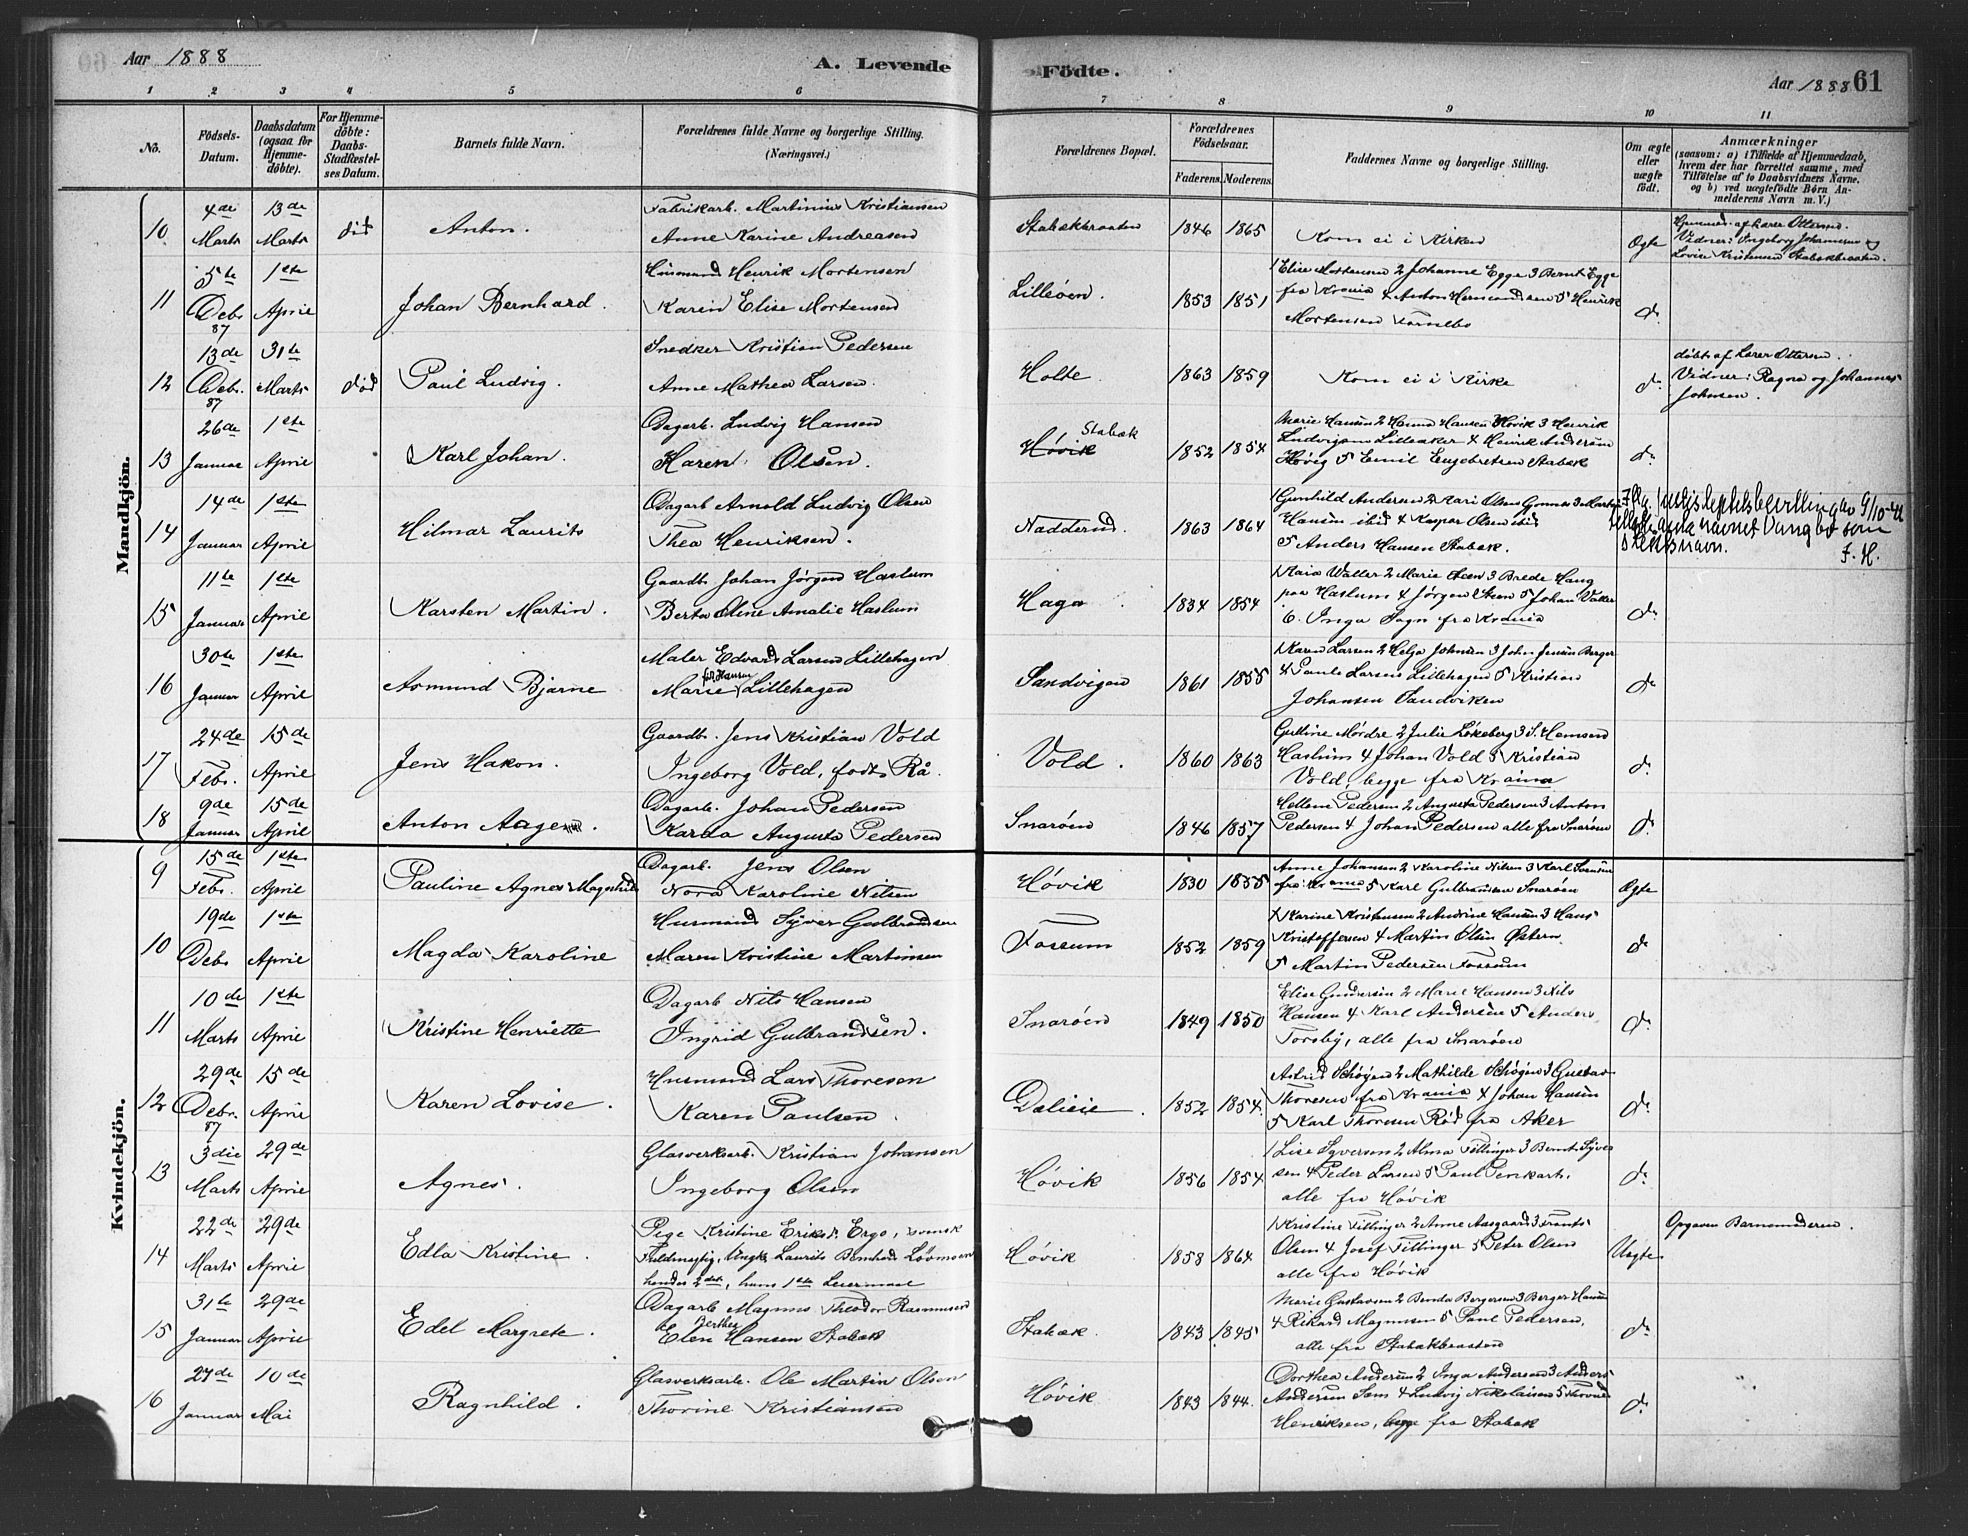 Aar 1888
A. Levende
Födte.
Aar 1888 61
1 2 3 4 5 6 7 8 9 10 11
No.
Födsels-
Datum.
Daabsdatum
(ogsaa for
Hjemme-
döbte).
For Hjemme-
döbte:
Daabs-
Stadfæstel-
ses Datum.
Barnets fulde Navn.
Forældrenes fulde Navne og borgerlige Stilling.
(Næringsvei.)
Forældrenes Bopæl.
Forældrenes
Födselsaar.
Faderens. Moderens.
Faddernes Navne og borgerlige Stilling.
Om ægte
eller
uægte
födt.
Anmærkninger
(saasom: a) i Tilfælde af Hjemmedaab,
hvem der har forrettet samme, med
Tilföielse af to Daabsvidners Navne.
og b) ved uægtefödte Börn An-
melderens Navn m. V.)
Mandkjön.
10 4de Marts 13de Marts
Anton.
Fabrikarb. Martinius Kristiansen
Anne Karine Andreasen
Stabækbraaten 1846 1865
Kom ei i Kirken
Ægte
Hjemmed. af Lærer Ottersen.
Vidner: Ingeborg Johannesen og
Lovise Kristensen Stabækbraaten.
11 5te Debr 87 1ste April
Johan Bernhard.
Husmand Henrik Mortensen
Karen Elise Mortensen
Lilleøen. 1853 1851
1 Elise Mortensen 2 Johanne Egge 3 Bernt Egge
fra Krania 4 Anton Hermandsen 5 Henrik
Mortensen
do
12 13de Debr. 87 31te Marts død
Paul Ludvig.
Snedker Kristian Pedersen
Anne Mathea Larsen.
Holte. 1863 1859
Kom ei i Kirke
do
døbt af Lærer Ottersen.
Vidner: Ragna og Johannes
Johnsen.
13 26de Januar 1ste April
Karl Johan.
Dagarb. Ludvig Hansen
Karen Olsen.
Stabæk
Høvik 1852 1854
Marie Hansen 2 Hansen Høvik 3 Henrik
Ludvigsen Lilleaker 4 Henrik Andersen
Høvig 5 Emil Engebretsen Stabæk
do
14 14de Januar 1ste April
Hilmar Laurits
Dagarb Arnold Ludvig Olsen
Thea Henriksen.
Nadderud. 1863 1864
1 Gunhild Andersen 2 Kari Olsen 3 Martin
Hansen ibid 4 Kaspar Olsen ibid
5 Anders Hansen Stabæk.
Iflg. Justisdeptets bevilling av 9/10-
navnet som
slektsnavn. F. H.
15 11te Januar 1ste April
Karsten Martin.
Gaardb. Johan Jørgen Haslum
Berta Oline Amalie Haslum
Haga 1834 1854
1 Kaia Walter 2 Marie Steen 3 Brede Haug
paa Haslum 4 Jørgen Steen 5 Johan Walter
6. Inga Sogn fra Krania
do
16 30te Januar 1ste April
Asmund Bjarne
Maler Edvard Larsen Lillehagen
født Hansen
Marie Lillehagen
Sandvigen 1861 1855
1 Karen Larsen 2 Helga Johnsen 3 John Jensen Berger
4 Paula Larsen Lillehagen 5 Kristian
Johansen Sandviken
do
17 24de Febr. 15de April
Jens Hakon.
Gaardb. Jens Kristian Vold
Ingeborg Vold, født Rå.
Vold. 1860 1863
Gulline Mordre 2 Julie Løkeberg 3 S. Hemsend
Haslum 4 Johan Vold 5 Kristian
Vold, begge fra Krania
do
18 9de Januar 15de April
Anton Aage.
Dagarb. Johan Pedersen
Karda Augusta Pedersen
Snarøen 1846 1857
Hellene Pedersen 2 Augusta Pedersen 3 Anton
Pedersen 4 Johan Pedersen alle fra Snarøen
do
Kvindekjön.
9 15de Febr. 1ste April
Pauline Agnes Magnhild
Dagarb. Jens Olsen
Nora Karoline Nilsen
Høvik 1830 1855
Anne Johansen 2 Karoline Nilsen 3 Karl
fra Krania 5 Karl Gulbransen Snarøen
Ægte
10 19de Debr 1ste April
Magda Karoline
Husmand Syver Gulbrandsen
Maren Kristine Martinsen
Fossum 1852 1859
1 Karine Kristensen 2 Andrine Hansen 3 Hans
Kristoffersen 4 Martin Olsen Østern
5 Martin Pedersen Fossum
do
11 10de Marts 1ste April
Kristine Henriette
Dagarb Nils Hansen
Ingrid Gulbrandsen.
Snarøen 1849 1850
Elise Gundersen 2 Marie Hansen 3 Nils
Hansen 4 Karl Andersen 5 Anders
Torsby, alle fra Snarøen
do
12 29de Debr. 87 15de April
Karen Lovise.
Husmand Lars Thoresen
Karen Paulsen.
Dalieie. 1852 1854.
Astrid Schøgen 2 Mathilde Schøgen 3 Gustav
Thoresen fra Krania 4 Johan Hansen
5 Karl Thoresen Rød fra Aker
do
13 3die Marts 29de April
Agnes.
Glasverksarb. Kristian Johansen
Ingeborg Olsen
Høvik 1856 1854
1 Lise Syversen 2 Alma Fillinger 3 Bernt Syver
sen 4 Peder Larsen 5 Paul
alle fra Høvik
do
14 22de Marts 29de April
Edla Kristine.
Pige Kristine Eriksd. Ergo, svensk
Fuldmægtig, Ungk. Laurits Bernhard Løvmoen
hendes 2det, hans 1ste Leiermaal
Høvik 1858 1864
1 Kristine Fillinger 2 Anne Aasgaard 3 Frants
Olsen 4 Josef Fillinger 5 Peter Olsen
alle fra Høvik
Uægte
Opgaven Barnemoderen.
15 31te Januar 29de April
Edel Margrete.
Dagarb Magnus Theodor Rasmussen
Berthea
Elen Hansen Stabæk
Stabæk. 1843 1845
Marie Gustavsen 2 Benda Bergersen 3 Berger Hansen
4 Rikard Magnusen 5 Paul Pedersen,
alle fra Stabækbraaten
do
16 27de Januar 10de Mai
Ragnhild.
Glasverksarb. Ole Martin Olsen
Thorine Kristiansen
Høvik 1843 1844.
Dorthea Andersen 2 Inga Andersen 3 Anders
Andersen Sem 4 Ludvig Nikolaisen 5
Henriksen, begge fra Stabæk
do